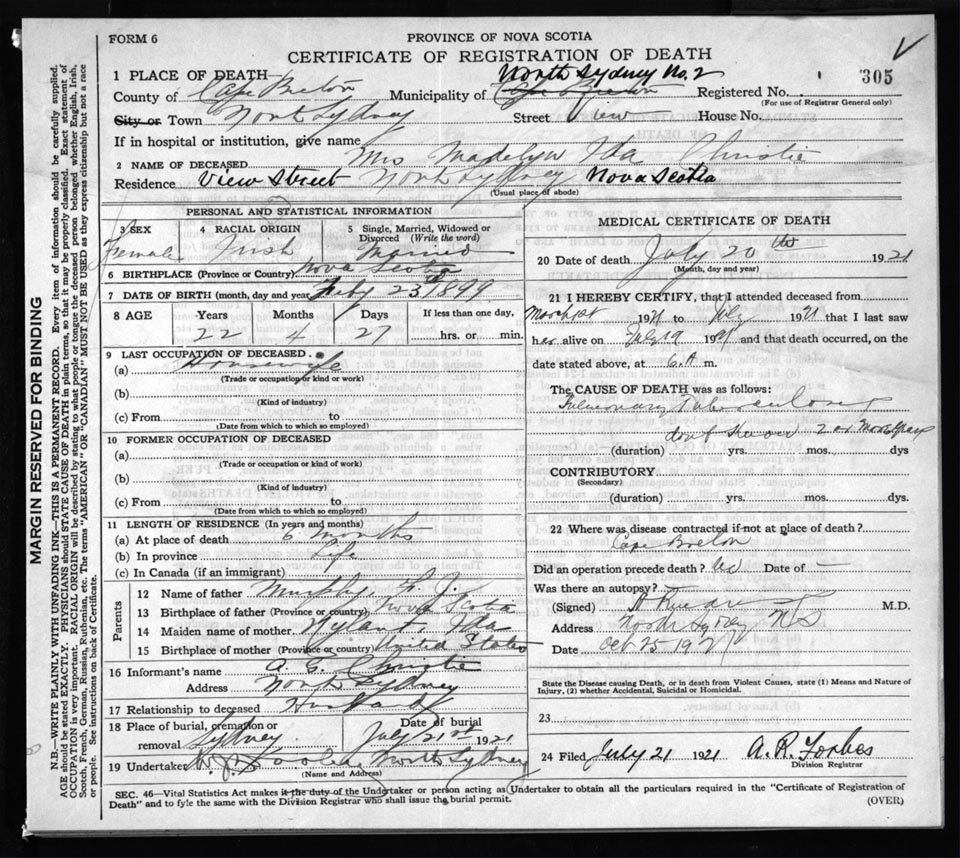 FORM 6
PROVINCE OF NOVA SCOTIA
CERTIFICATE OF REGISTRATION OF DEATH
305
1 PLACE OF DEATH North Sydney No. 2
County of Cape Breton Municipality of Cape Breton Registered No.
(For use of Registrar General only)
City or Town North Sydney Street View House No.
If in hospital or institution, give name
2 NAME OF DECEASED Mrs Madelyn Ida Christie
Residence View Street North Sydney Nova Scotia
(Usual place of abode)
PERSONAL AND STATISTICAL INFORMATION
3 SEX 4 RACIAL ORIGIN 5 Single, Married, Widowed or Divorced (Write the word)
Female Irish Married
6 BIRTHPLACE (Province or Country) Nova Scotia
7 DATE OF BIRTH (month, day and year) Feby 23 1899
8 AGE Years Months Days If less than one day,
22 4 27 hrs. or min.
9 LAST OCCUPATION OF DECEASED
(a) Housewife
(Trade or occupation or kind or work)
(b)
(Kind of industry)
(c) From to
(Date from which to which so employed)
10 FORMER OCCUPATION OF DECEASED
(a)
(Trade or occupation or kind of work)
(b)
(Kind of industry)
(c) From to
(Date from which to which so employed)
11 LENGTH OF RESIDENCE (In years and months)
(a) At place of death 6 months
(b) In province Life
(c) In Canada (if an immigrant)
Parents
12 Name of father Murphy, F. J.
13 Birthplace of father (Province or country) Nova Scotia
14 Maiden name of mother Ida
15 Birthplace of mother (Province or country) United States
16 Informant's name A. G. Christie
Address North Sydney
17 Relationship to deceased Husband
18 Place of burial, cremation or removal Sydney Date of burial July 21st 1921
19 Undertaker North Sydney
(Name and Address)
MEDICAL CERTIFICATE OF DEATH
20 Date of death July 20th 1921
(Month, day and year)
21 I HEREBY CERTIFY, that I attended deceased from
March 1st 1921 to July 1921 that I last saw
her alive on July 19 1921 and that death occurred, on the
date stated above, at 6. A m.
The CAUSE OF DEATH was as follows:
Pulmonary Tuberculosis
don't know 2 or more years
(duration) yrs. mos. dys
CONTRIBUTORY
(Secondary)
(duration) yrs. mos. dys.
22 Where was disease contracted if not at place of death?
Cape Breton
Did an operation precede death? No Date of —
Was there an autopsy? —
(Signed) M.D.
Address North Sydney N S
Date Oct 25 1921
State the Disease causing Death, or in death from Violent Causes, state (1) Means and Nature of
Injury, (2) whether Accidental, Suicidal or Homicidal.
23
24 Filed July 21 1921 A. R. Forbes
Division Registrar
SEC. 46—Vital Statistics Act makes it the duty of the Undertaker or person acting as Undertaker to obtain all the particulars required in the "Certificate of Registration of
Death" and to fyle the same with the Division Registrar who shall issue the burial permit.
(OVER)
MARGIN RESERVED FOR BINDING
N.B.—WRITE PLAINLY WITH UNFADING INK—THIS IS A PERMANENT RECORD. Every item of information should be carefully supplied.
AGE should be stated EXACTLY. PHYSICIANS should STATE CAUSE OF DEATH in plain terms, so that it may be properly classified. Exact statement of
OCCUPATION is very important. RACIAL ORIGIN will be described by stating to what people or tongue the deceased person belonged whether English, Irish,
Scotch, French, German, Russian, Ruthenian, etc. The terms "AMERICAN" OR "CANADIAN" MUST NOT BE USED as they express citizenship but not a race
or people. See instructions on back of Certificate.